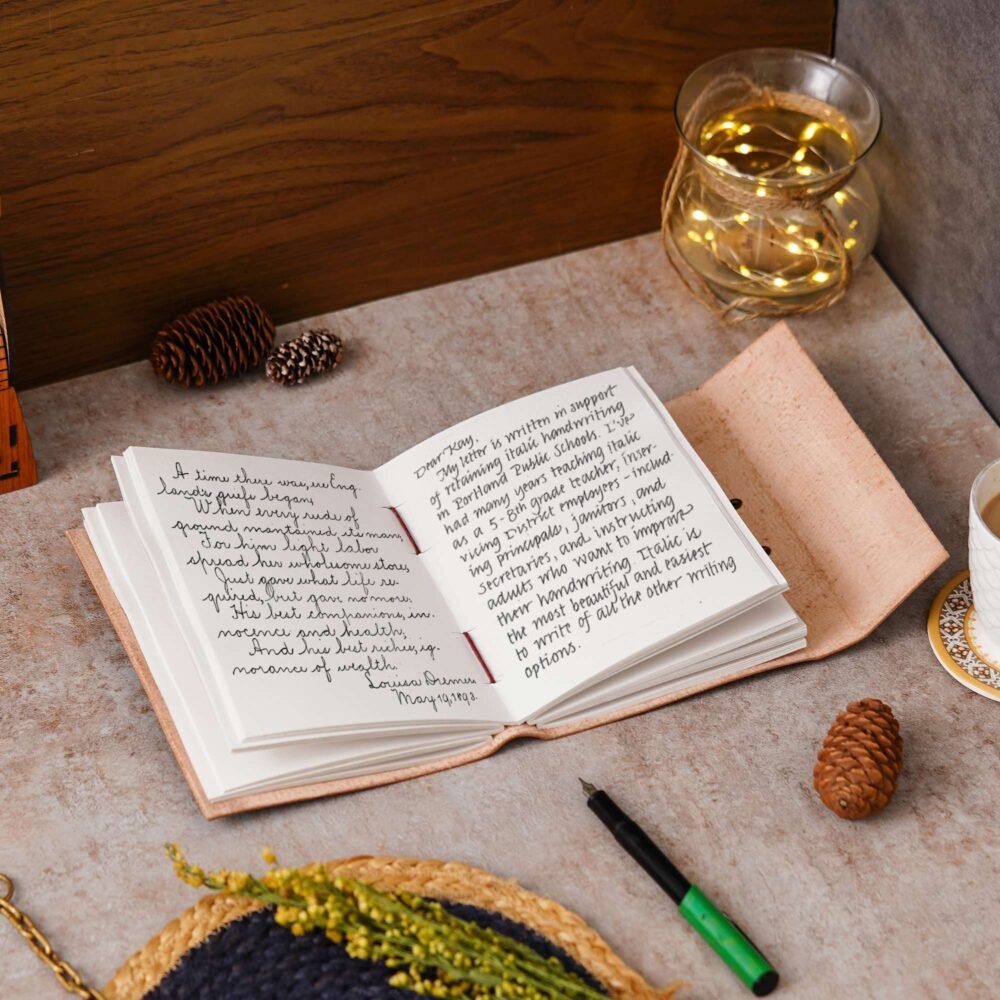 A time there was, ere Eng
land's griefs began,
When every rude of
ground, mantained its man;
For him light labor
spread her wholesome store,
Just gave what life re-
quired, but gave no more.
His best companions, in-
nocence and health;
And his best riches, ig-
norance of wealth.
Louisa
May 19, 1893.
Dear Kay,
My letter is written in support
of retaining italic handwriting
in Portland Public Schools. I've
had many years teaching italic
as a 5-8th grade teacher, inser-
vicing District employees - includ-
ing principals, janitors and
secretaries, and instructing
adults who want to improve
their handwriting. Italic is
the most beautiful and easiest
to write of all the other writing
options.